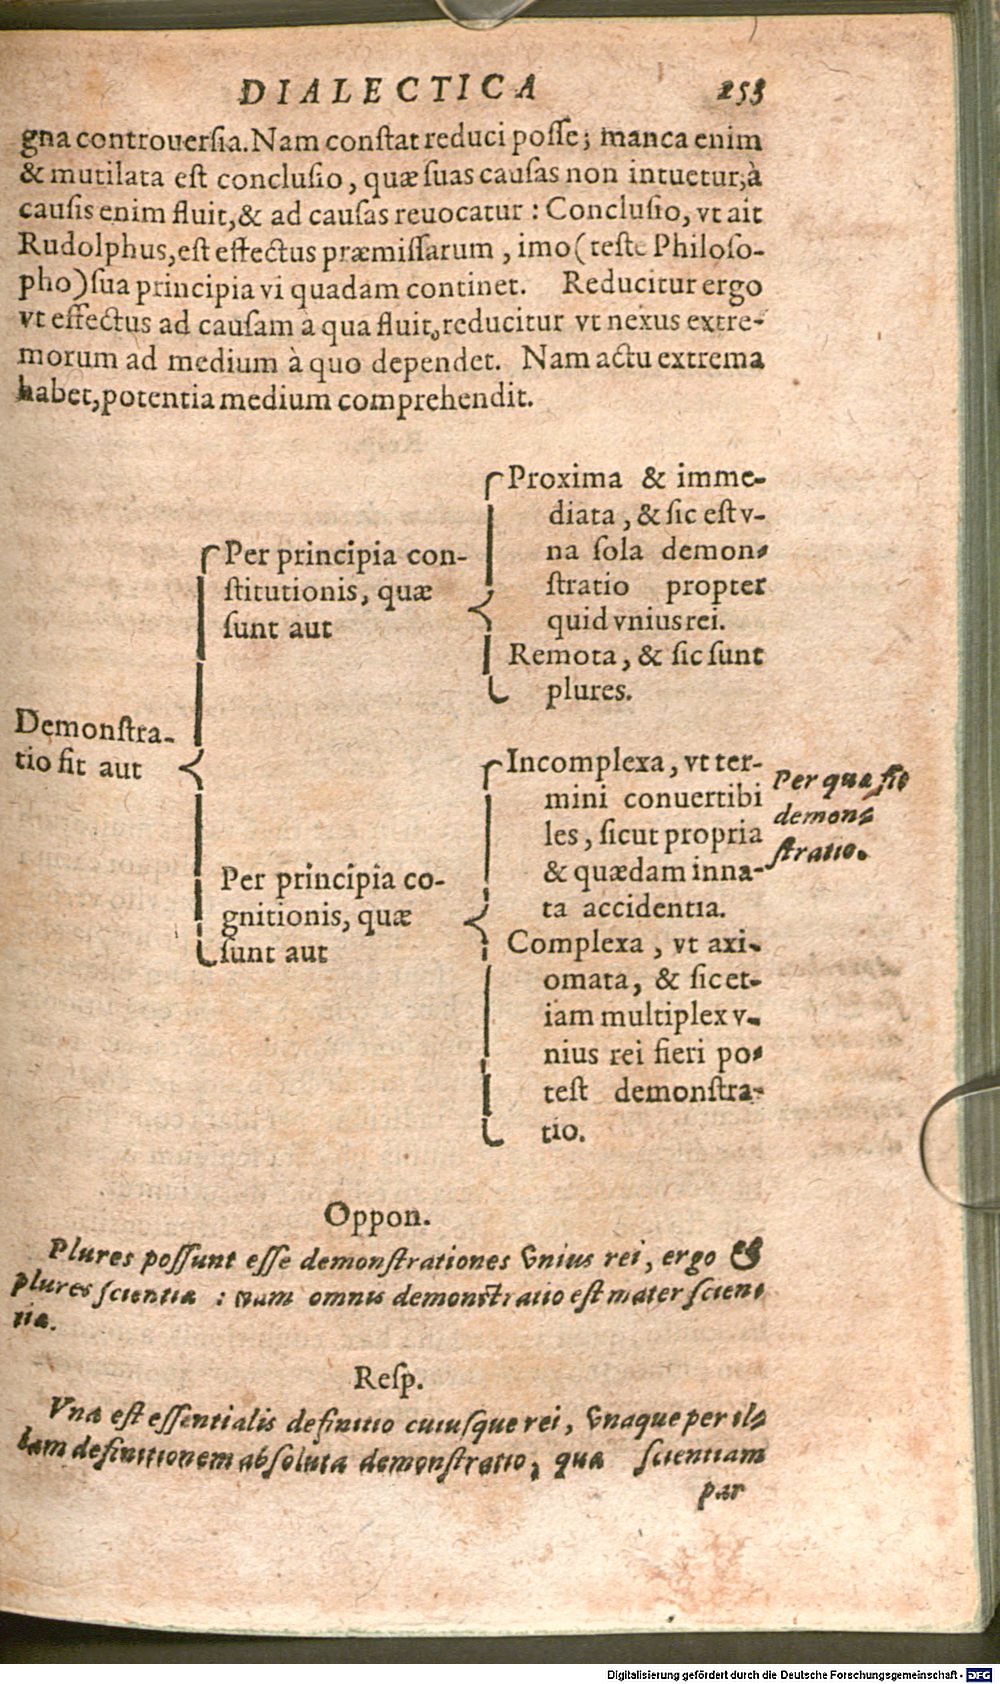 DIALECTICA 253
gna controuersia. Nam constat reduci posse; manca enim
& mutilata est conclusio, quæ suas causas non intuetur; à
causis enim fluit, & ad causas reuocatur: Conclusio, vt ait
Rudolphus, est effectus præmissarum, imo (teste Philoso-
pho) sua principia vi quadam continet. Reducitur ergo
vt effectus ad causam a qua fluit, reducitur vt nexus extre-
morum ad medium à quo dependet. Nam actu extrema
habet, potentia medium comprehendit.
Demonstra-
tio fit aut
Per principia con-
stitutionis, quæ
sunt aut
Proxima & imme-
diata, & sic est v-
na sola demon-
stratio propter
quid vnius rei.
Remota, & sic sunt
plures.
Per principia co-
gnitionis, quæ
sunt aut
Incomplexa, vt ter-
mini conuertibi
les, sicut propria
& quædam inna-
ta accidentia.
Complexa, vt axi-
omata, & sic et-
iam multiplex v-
nius rei fieri po-
test demonstra-
tio.
Per quæ fit
demon-
stratio.
Oppon.
Plures possunt esse demonstrationes vnius rei, ergo &
plures scientiæ: nam omnis demonstratio est mater scien-
tiæ.
Resp.
Vna est essentialis definitio cuiusque rei, vnaque per il-
lam definitionem absoluta demonstratio, quæ scientiam
par
Digitalisierung gefördert durch die Deutsche Forschungsgemeinschaft - DFG